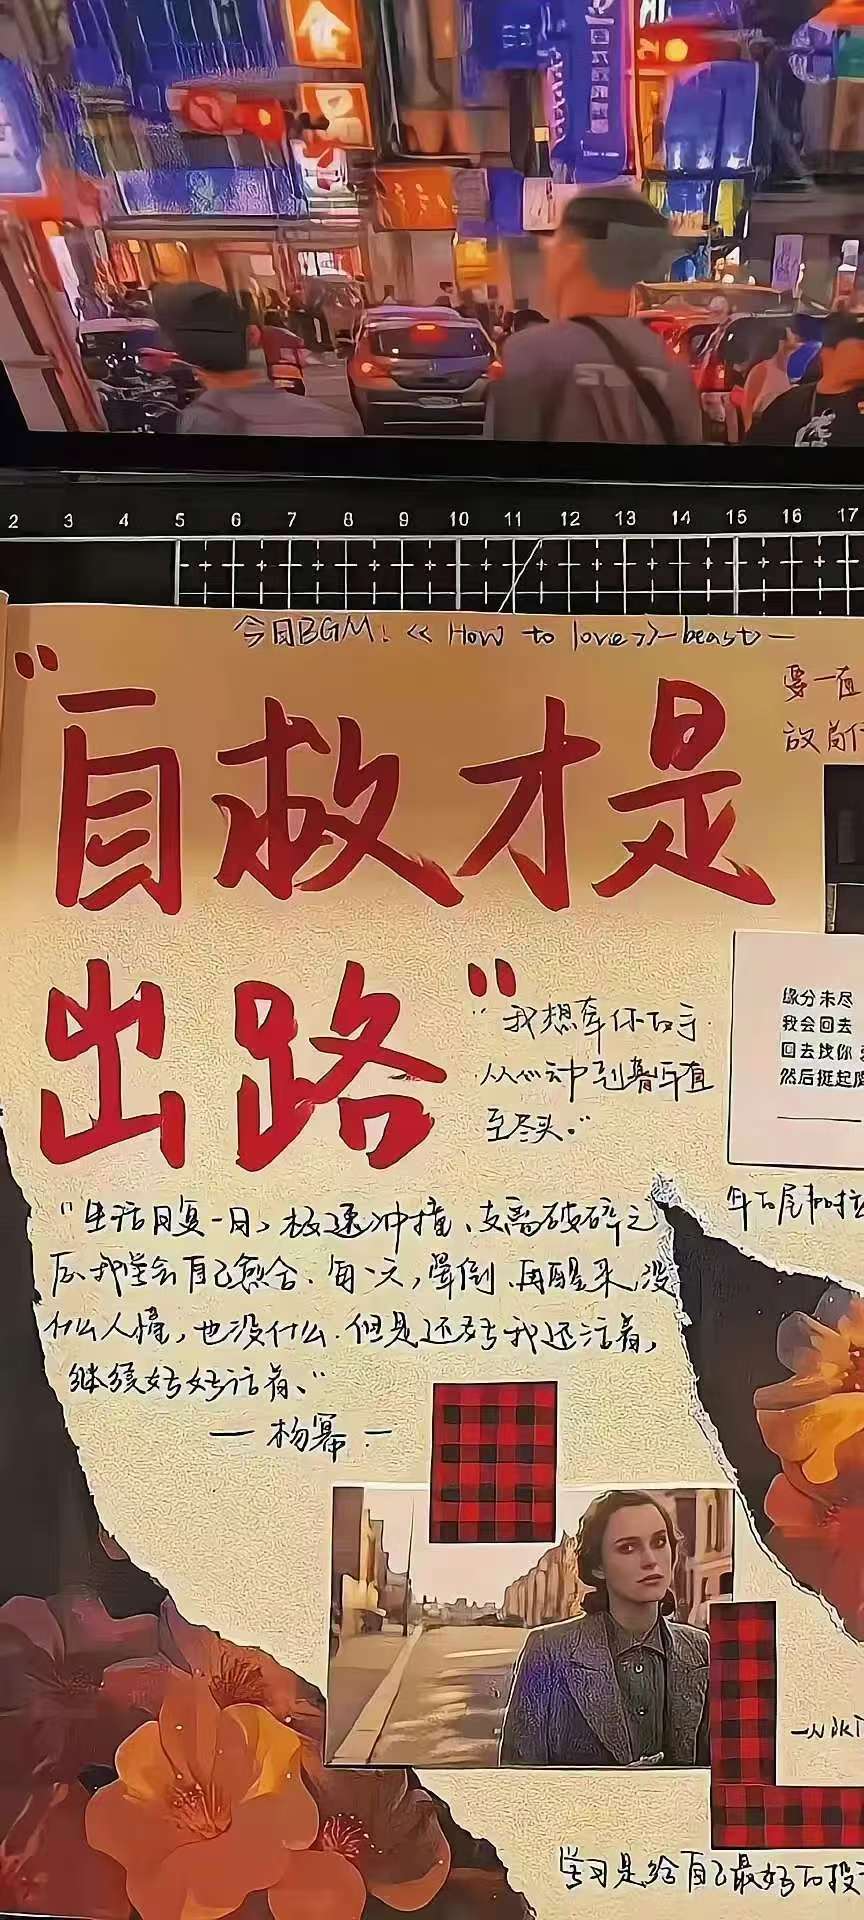 2 3 4 5 6 7 8 9 10 11 12 13 14 15 16 17
今日BGM:《How to love》—beast—
"自救才是
出路"
要一直
"我想牵你的手
从心动到暮年直
至尽头。"
缘分未尽
我会回去
回去找你
然后挺起
"生活日复一日,极速冲撞、支离破碎之
后,我学会自己愈合、每一天,晕倒、再醒来,没
什么人懂,也没什么.但是还好我还活着,
继续好好活着。"
— 杨幂 —
学习是给自己最好的投